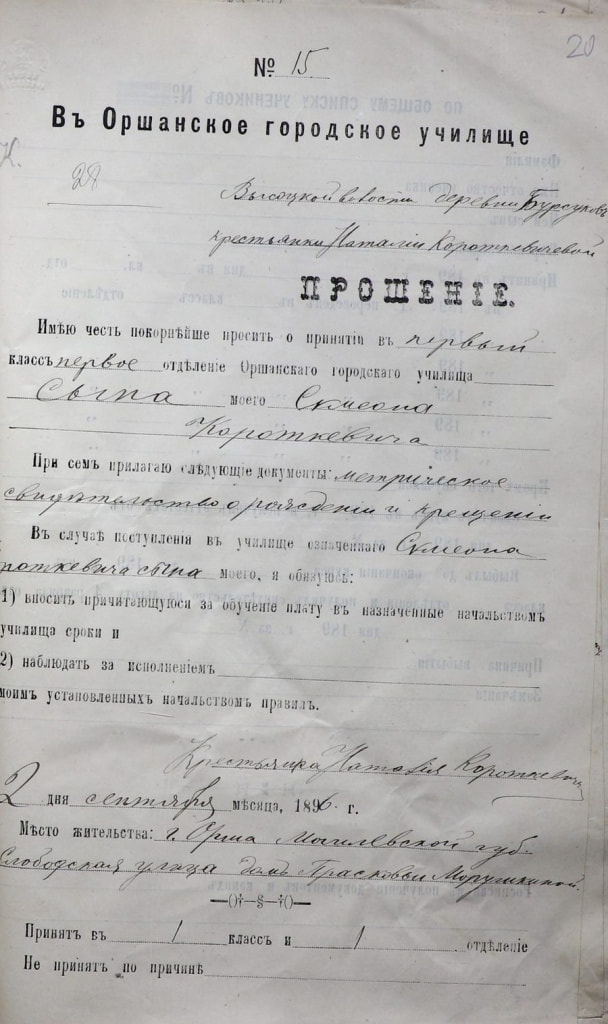 20
№ 15
Въ Оршанское городское училище
28
Высоцкой волости деревни Бурсуковъ
крестьянки Наталiи Короткевичевой
ПРОШЕНIЕ.
Имѣю честь покорнѣйше просить о принятiи въ первый
классъ первое отдѣленiе Оршанскаго городскаго училища
сына моего Симеона
Короткевича
При семъ прилагаю слѣдующiе документы: метрическое
свидѣтельство о рожденiи и крещенiи
Въ случаѣ поступленiя въ училище означеннаго Симеона
роткевича сына моего, я обязуюсь:
1) вносить причитающуюся за обученiе плату въ назначенные начальствомъ
училища сроки и
2) наблюдать за исполненiемъ
моимъ установленныхъ начальствомъ правилъ.
Крестьянка Наталiя Короткевичъ
2 дня сентября мѣсяца, 1896 г.
Мѣсто жительства: г. Орша Могилевской губ.
Слободская улица домъ Прасковьи Марушкиной.
Принятъ въ 1 классъ и 1 отдѣленiе
Не принятъ по причинѣ